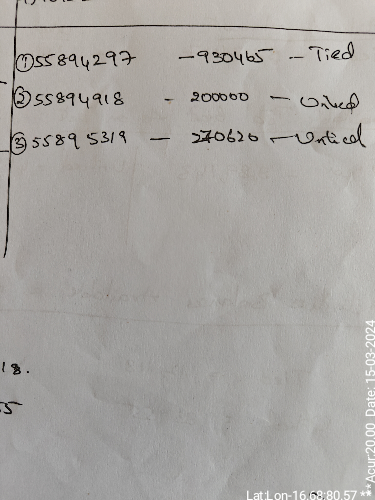 ① 55894297 - 930465 - Tied
② 55894918 - 200000 -
③ 55895319 - 270620 - Untied
18.
55
Lat:Lon-16.68:80.57 **Acur:20.00 Date: 15-03-2024